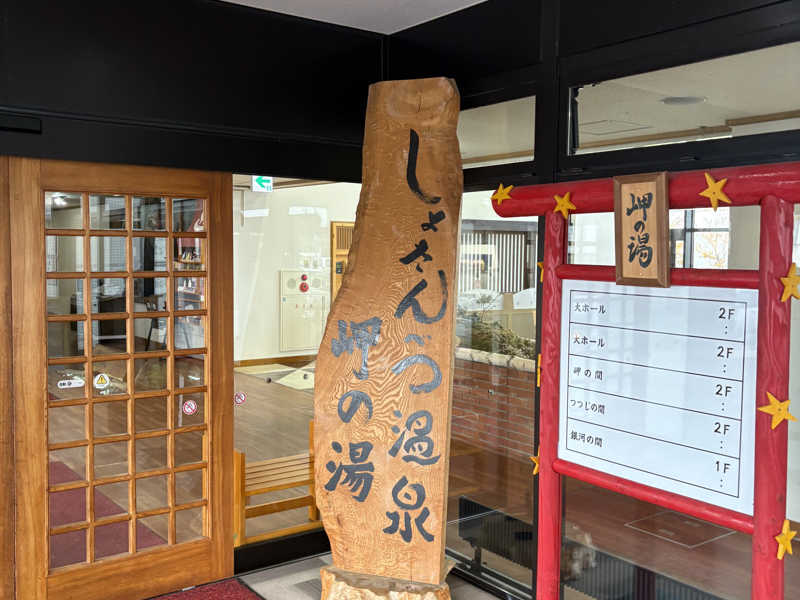 しょさんべつ温泉
岬の湯
岬の湯
大ホール 2F
:
大ホール 2F
:
岬の間 2F
:
つつじの間 2F
:
銀河の間 1F